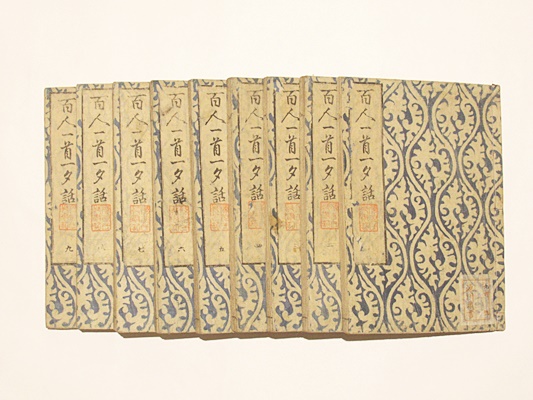 百人一首一夕話
百人一首一夕話
百人一首一夕話
百人一首一夕話
百人一首一夕話 五
百人一首一夕話 六
百人一首一夕話 七
百人一首一夕話 八
百人一首一夕話 九